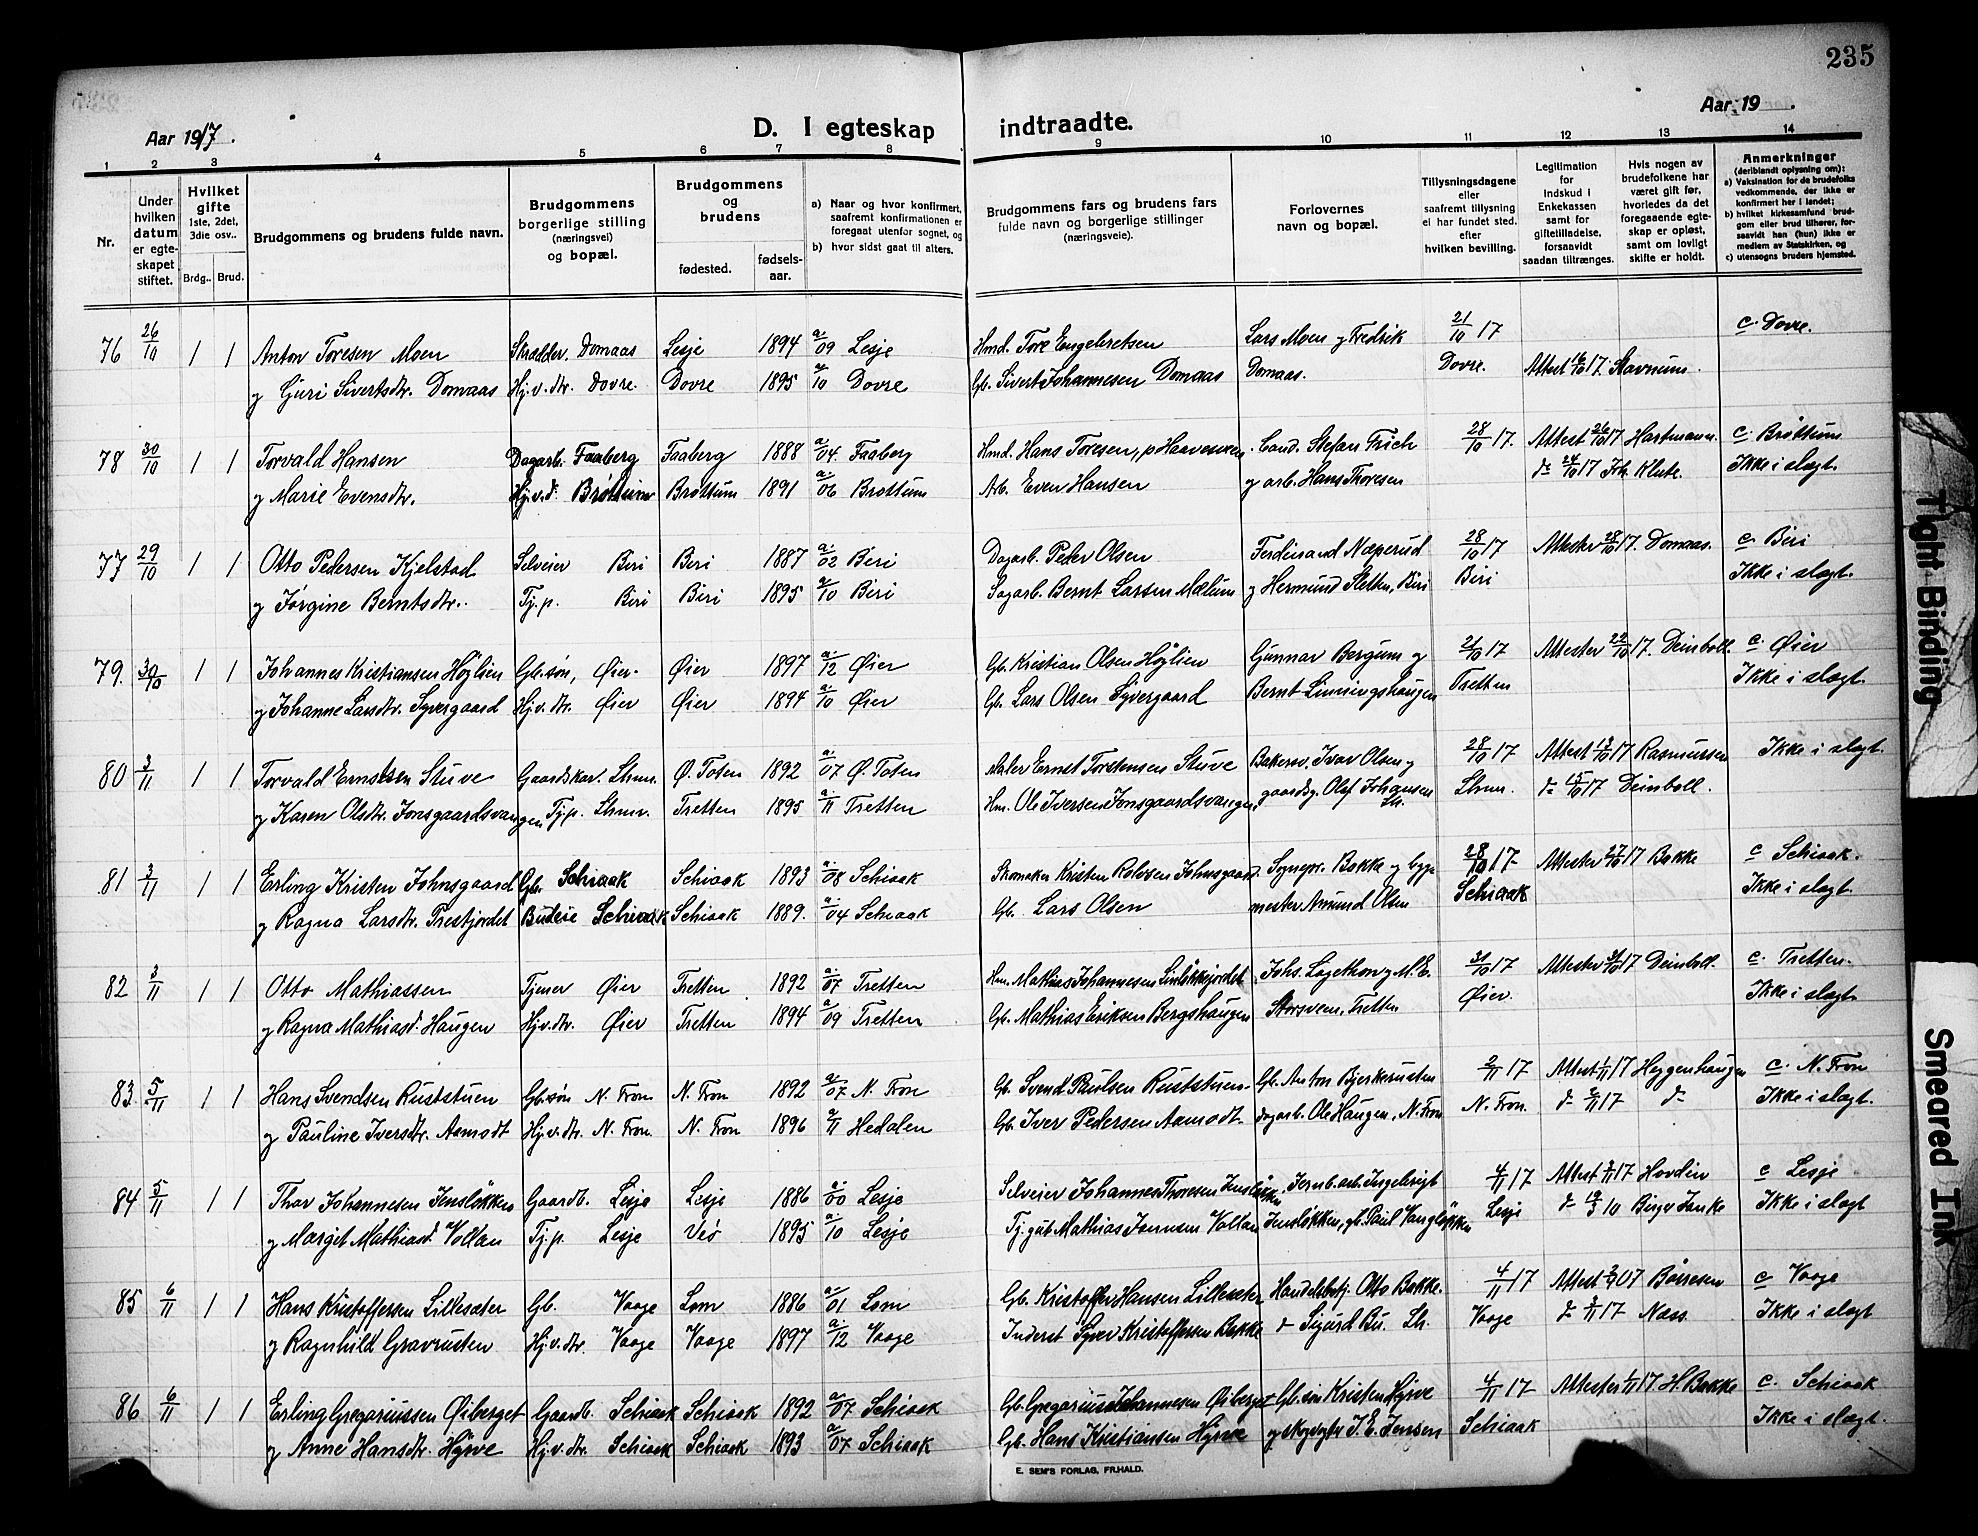 235
Aar 1917.
D. I egteskap indtraadte.
Aar 19 .
1 2 3 4 5 6 7 8 9 10 11 12 13 14
Nr.
Under hvilken datum er egteskapet stiftet.
Hvilket gifte 1ste, 2det, 3die osv..
Brdg.. Brud.
Brudgommens og brudens fulde navn.
Brudgommens borgerlige stilling (næringsvei) og bopæl.
Brudgommens og brudens
fødested. fødselsaar.
a) Naar og hvor konfirmert, saafremt konfirmationen er foregaat utenfor sognet, og
b) hvor sidst gaat til alters.
Brudgommens fars og brudens fars fulde navn og borgerlige stillinger (næringsveie).
Forlovernes navn og bopæl.
Tillysningsdagene eller saafremt tillysning ei har fundet sted. efter hvilken bevilling.
Legitimation for Indskud i Enkekassen samt for giftetilladelse, forsaavidt saadan tiltrænges.
Hvis nogen av brudefolkene har været gift før, hvorledes da det foregaaende egteskap er opløst, samt om lovligt skifte er holdt.
Anmerkninger (deriblandt oplysning om):
a) Vaksination for de brudefolks vedkommende, der ikke er konfirmert her i landet;
b) hvilket kirkesamfund brudgom eller brud tilhører, forsaavidt han (hun) ikke er medlem av Statskirken, og
c) utensogns bruders hjemsted.
76 26/10 1 1 Anton Toresen Moen Skrædder. Domaas Lesje 1894 a. 09 Lesje Hmd. Tore Engebretsen Lars Moen og Fredrik 21/10 17 c. Dovre.
og Guri Sivertsdtr. Domaas Hj.v.dtr. Dovre. Dovre 1895 a/10 Dovre Gb. Sivert Johannesen Domaas Domaas. Dovre. Attest 16/10 17. Stavnum.
78 30/10 1 1 Torvald Hansen Dagarb. Faaberg Faaberg 1888 a/04. Faaberg Hmd. Hans Toresen, p Haavesveen Cand. Stefan Frich 28/10 17. Attest 26/10 17 Hartmann. c. Brøttum
og Marie Evensdtr. Hj.v.d. Brøttum Brøttum 1891 a/06 Brøttum Arb. Even Hansen og arb. Hans Thoresen do 24/10 17 Joh. Klute. Ikke i slægt.
77 29/10 1 1 Otto Pedersen Kjelstad Selveier Biri Biri 1887 a/02 Biri Dagarb. Peder Olsen Ferdinand Næperud 28/10 17 Attester 28/10 17. Domaas. c. Biri
og Jørgine Berntsdtr. Tj.p. Biri Biri 1895 a/10 Biri Dagarb. Bernt Larsen Mælum og Hermund Sletten, Biri Biri Ikke i slægt.
79. 30/10 1 1 Johannes Kristiansen Høylien Gb.søn, Øier. Øier 1897 a/12 Øier Gb. Kristian Olsen Høylien Gunnar Bergum og 21/10 17 Attester 22/10 17. Deinboll c. Øier
og Johanne Larsdtr. Syvergaard Hj.v.dtr. Øier Øier 1894 a/10 Øier Gb. Lars Olsen Syvergaard Bernt Linningshaugen Tretten Ikke i slægt.
80 3/11 1 1 Torvald Ernstsen Stuve Gaardskar. Lhmr. Ø. Toten 1892 a/07 Ø. Toten Maler Ernst Torstensen Stuve Bakersv. Ivar Olsen og 28/10 17 Attest 13/10 17 Rasmussen Ikke i slægt.
og Karen Olsdtr. Jonsgaardsvangen Tj.p. Lhmr. Tretten 1895 a/11 Tretten Hm. Ole Iversen Jonsgaardsvangen, gaardsg. Olaf Johansen Lh. Lhmr. do 15/10 17 Deinboll.
81 3/11 1 1 Erling Kristen Johnsgaard Gb. Schiaak Schiaak 1893 a/08 Schiaak Skomaker Kristen Rolvsen Johnsgaard Sognepr. Bakke og byg- 28/10 17 Attester 27/10 17 Bakke c Schiaak.
og Ragna Larsdtr. Trestjordet Budeie Schiaak Schiaak 1889. a/04 Schiaak Gb. Lars Olsen mester Amund Olsen Schiaak Ikke i slægt.
82 3/11 1 1 Otto Mathiassen Tjener Øier Tretten 1892 a/07 Tretten Hm. Mathias Johannesen Johs. Lagethon og M. E. 31/10 17 Attester 31/10 17 Deinboll. c. Tretten.
og Ragna Mathiasd. Haugen Hj.v.dtr. Øier Tretten 1894 a/09 Tretten Gb. Mathias Eriksen Bergshaugen Storsveen, Tretten Øier. Ikke i slægt.
83 5/11 1 1 Hans Svendsen Ruststuen Gb.søn N. Fron. N. Fron 1892 a/07 N. Fron Gb. Svend Paulsen Ruststuen Gb. Anton Bjerkerusten 2/11 17 Attest 1/11 17 Heggenhaugen c. N. Fron
og Pauline Iversdtr. Aamodt Hj.v.dtr. N. Fron. N. Fron 1896 a/11 Hedalen Gb. Iver Pedersen Aamodt. dagarb. Ole Haugen, N. Fron N. Fron. do 2/11 17 do Ikke i slægt.
84 5/11 1 1 Thor Johannesen Jensløkken Gaardb. Lesje Lesje 1886 a/00 Lesje Selveier Johannes Thoresen Jensløkken Jernb. arb. Ingebrigt 4/11 17 Attest 3/11 17 Hovdén c Lesje
og Marget Mathiasd. Vollan Tj.p. Lesje Veø 1895 a/10 Lesje Tj.gut Mathias Jørnsen Vollan Jensløkken, gb. Paul Vangløkken Lesje do 19/3 10 Birger Janke Ikke i slægt
85 6/11 1 1 Hans Kristoffersen Lillesæter Gb. Vaage Lom 1886 a/01 Lom Gb. Kristoffer Hansen Lillesæter Handelsbetj. Otto Bakke. 4/11 17 Attest 07 Børresen c Vaage
og Ragnhild Gravrusten Hj.v.dtr. Vaage Vaage 1897 a/12 Vaage Inderst Syver Kristoffersen Bakke do Sigurd Bu. Lh. Vaage do 17 Næss. Ikke i slægt
86 6/11 1 1 Erling Gregoriussen Øiberget Gaardb. Schiaak Schiaak 1892 a/07 Schiaak Gb. Gregorius Johannesen Øiberget Gb.søn Kristen Hyrve 4/11 17 Attester 1/11 17 H. Bakke c. Schiaak
og Anne Hansdtr. Hyrve Hj.v.dtr. Schiaak Schiaak 1893 a/07 Schiaak Gb. Hans Kristiansen Hyrve og skogvgtr I. E. Jensen Schiaak Ikke i slægt.
E. SEM'S FORLAG, FR.HALD.
Tight Binding
Smeared Ink